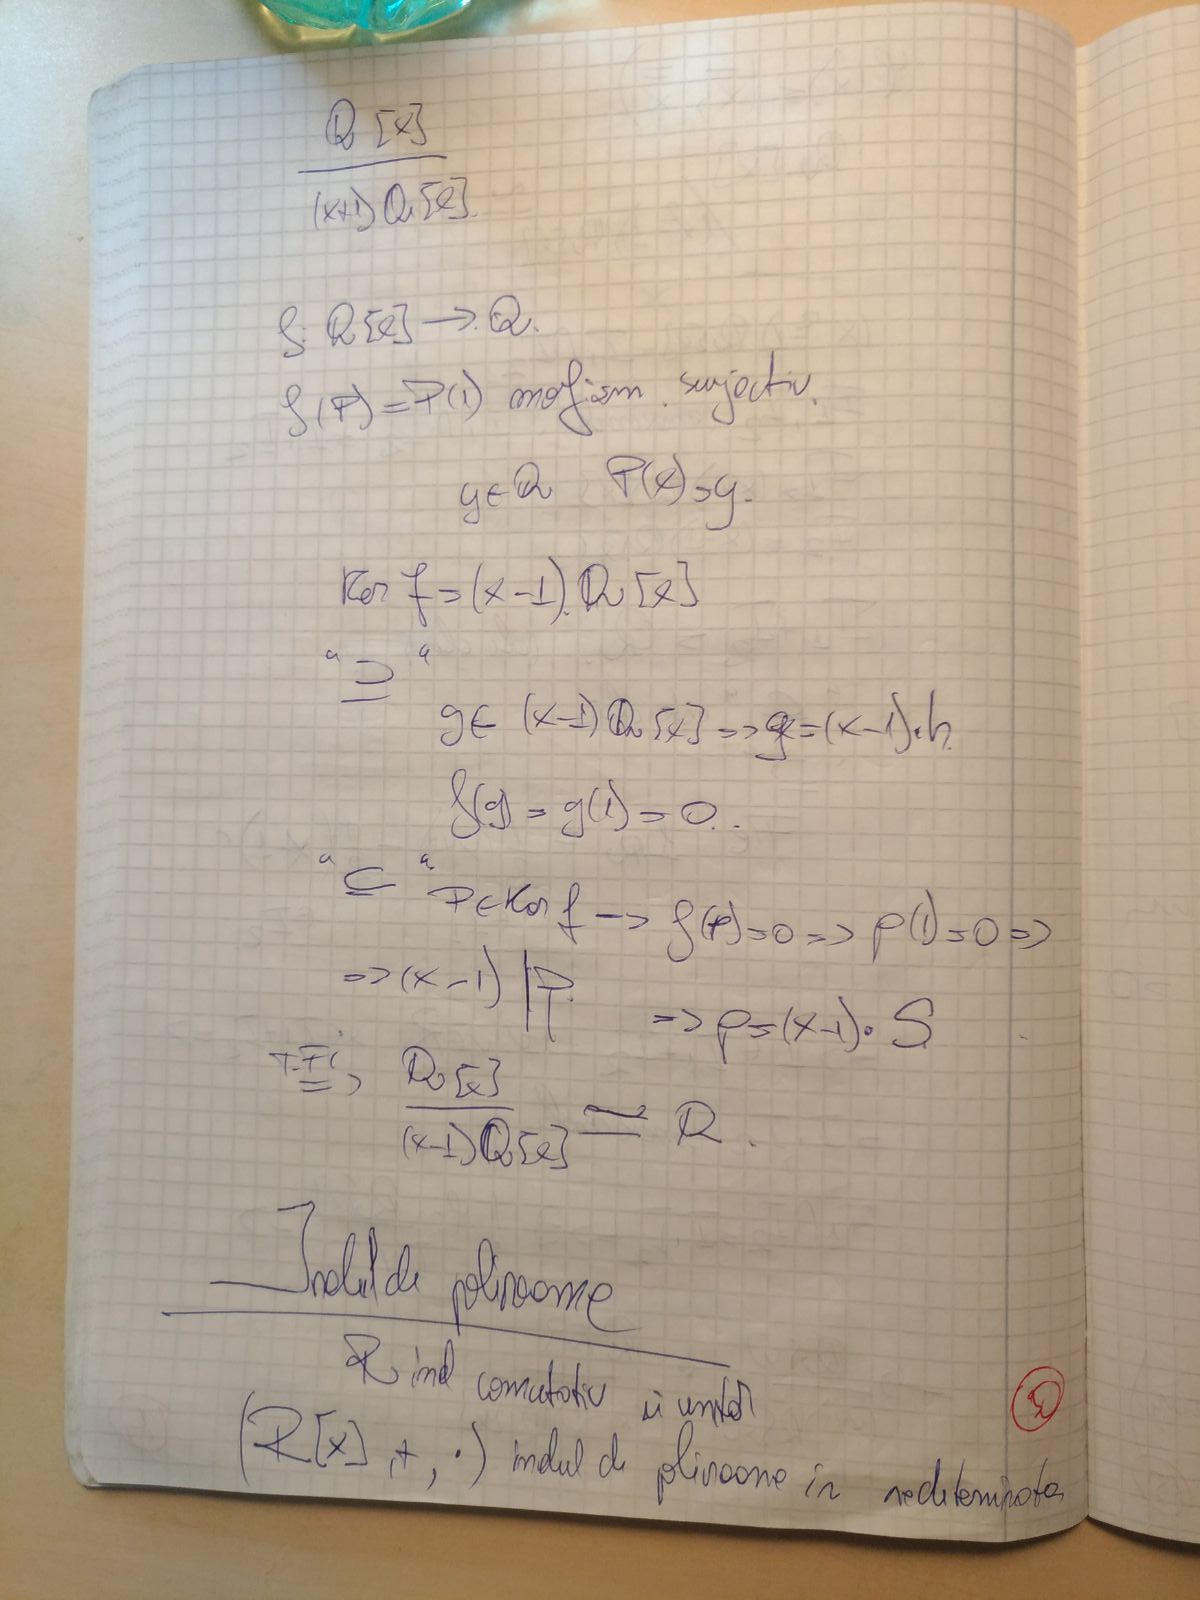 Q[x]
(x+1)Q[x].
f: Q[x] → Q.
f(P) = P(1) morfism surjectiv.
y ∈ Q P(x) = y.
Ker f = (x-1).Q[x]
"⊇"
g ∈ (x-1)Q[x] => g = (x-1)·h.
f(g) = g(1) = 0.
"⊆" P ∈ Ker f → f(P) = 0 => p(1) = 0 =>
=> (x-1) | P. => p = (x-1)· S
T.F.i => Q[x]
(x-1)Q[x] ≃ Q.
Inelul de polinoame
R inel comutativ și unitar
(R[x], +, ·) inelul de polinoame în nedeterminata